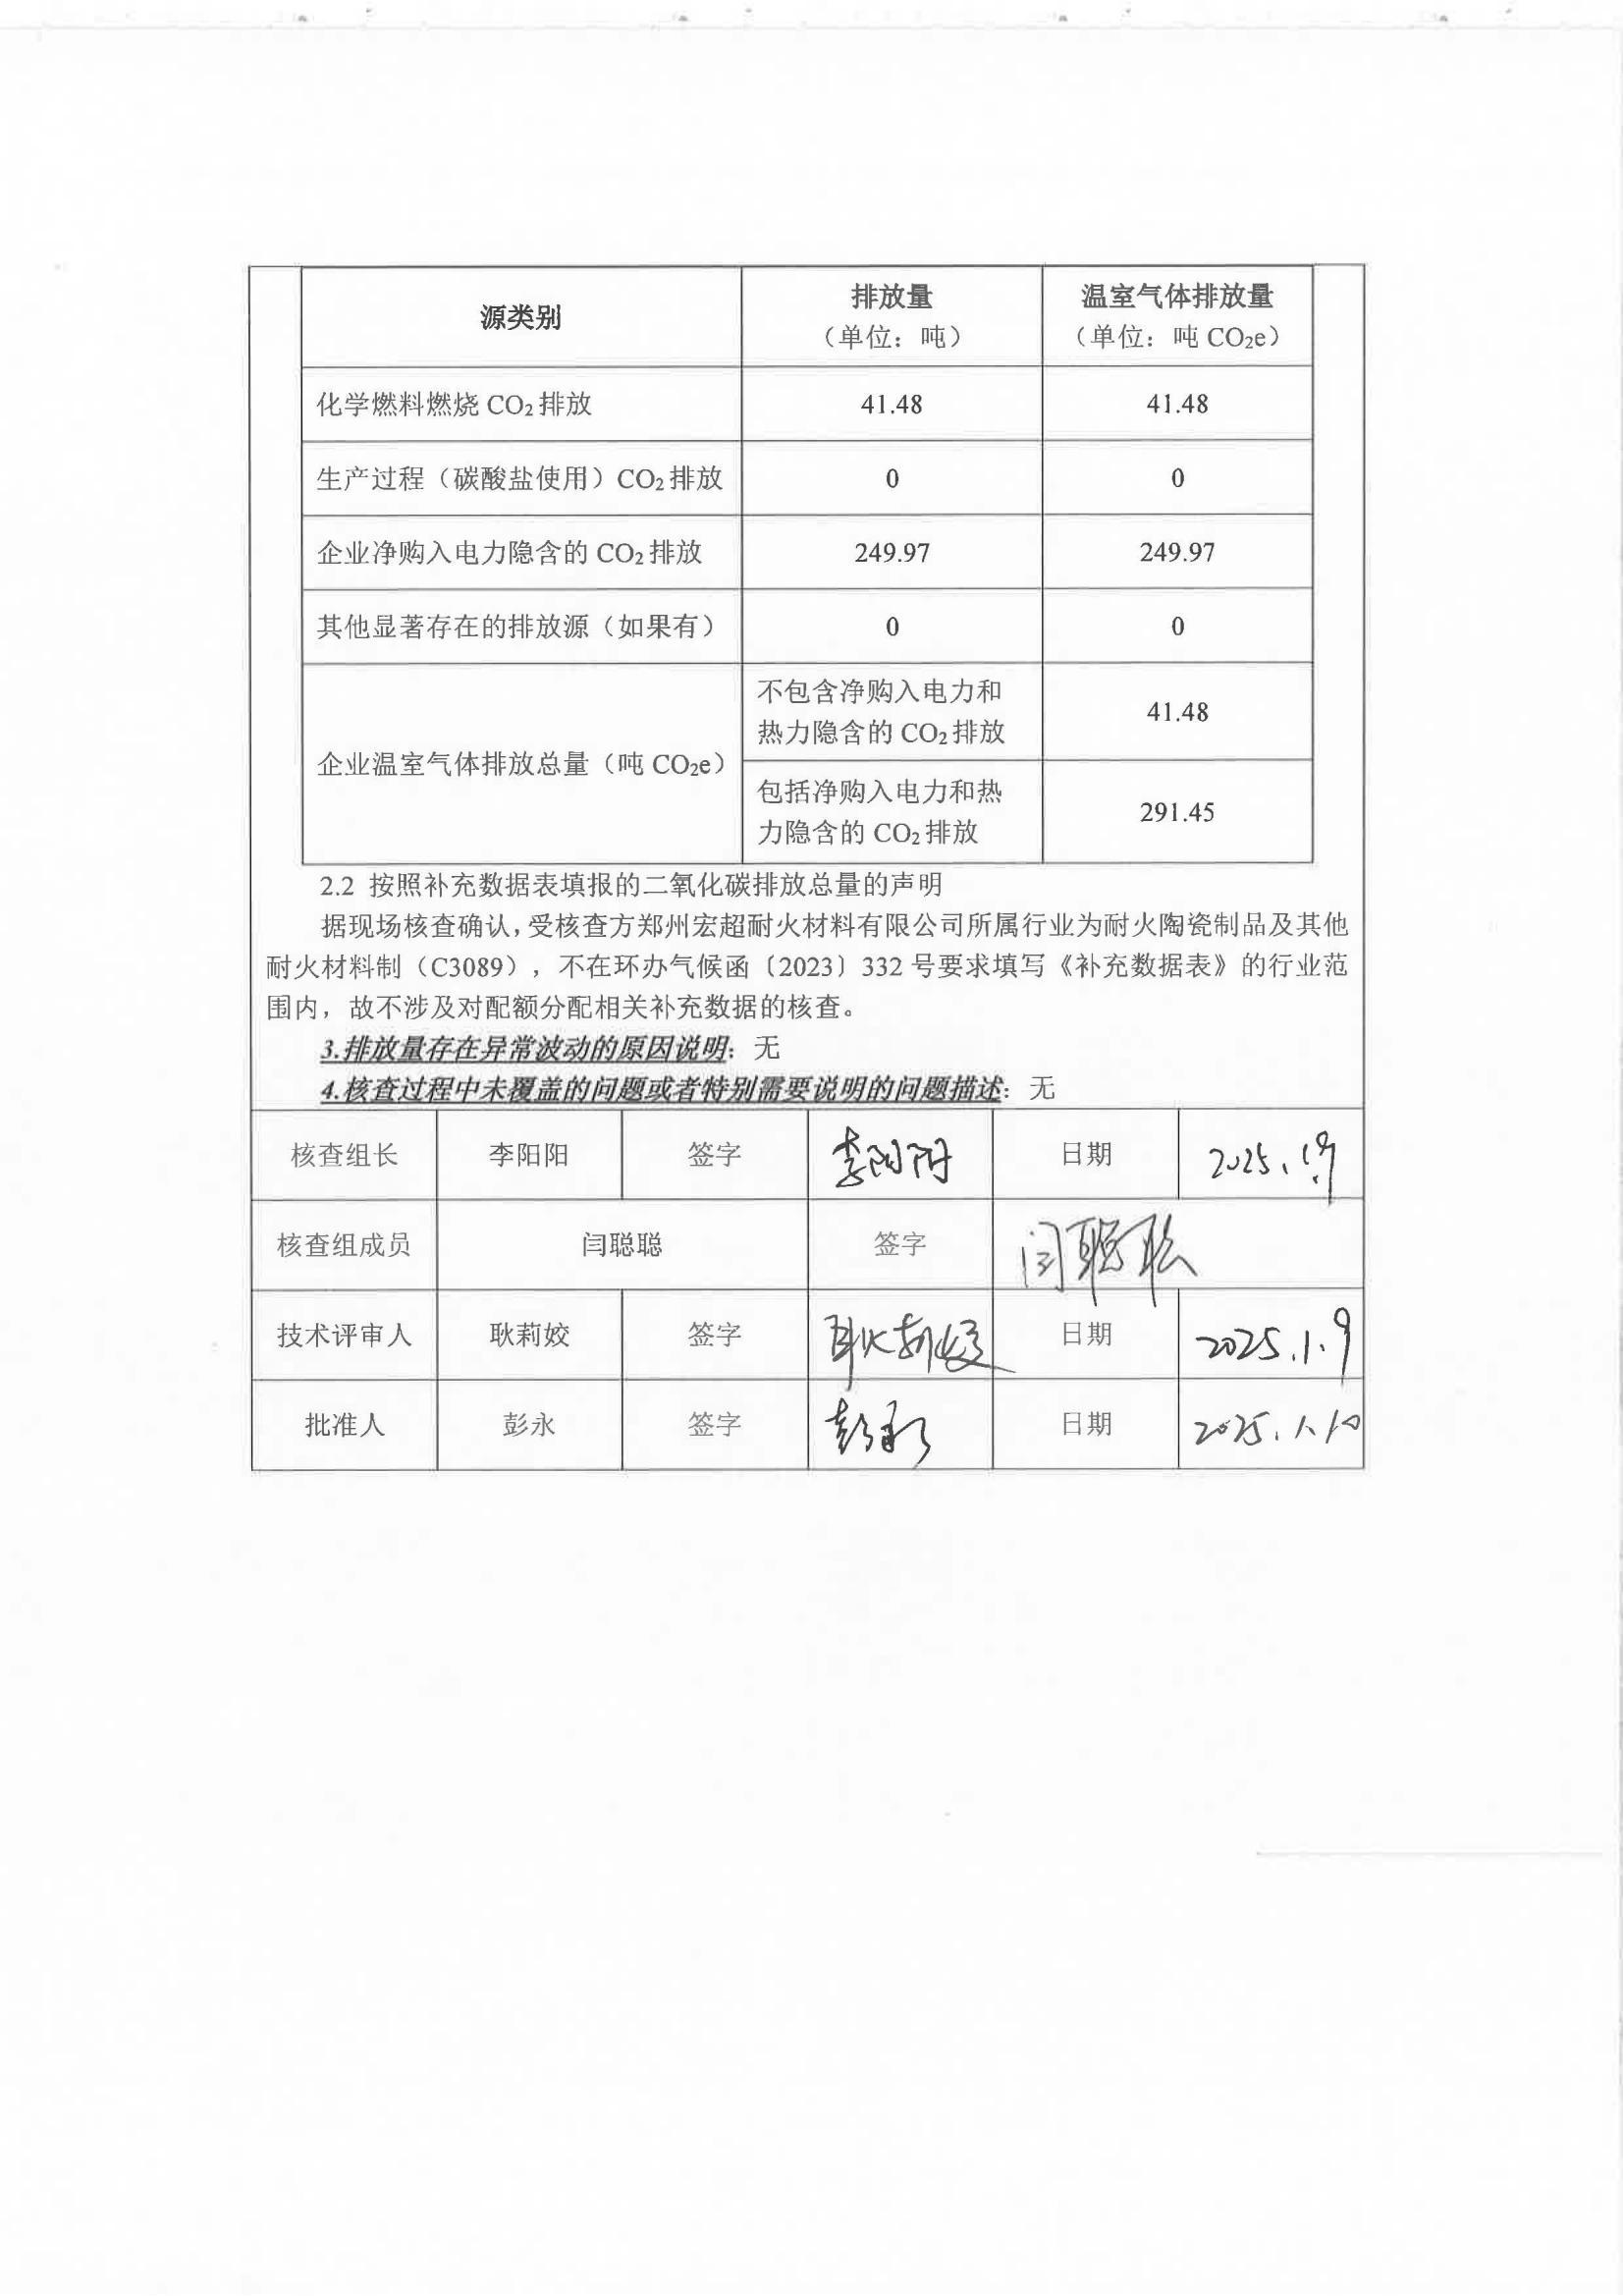 源类别 排放量 温室气体排放量
（单位：吨） （单位：吨 CO₂e）
化学燃料燃烧 CO₂排放 41.48 41.48
生产过程（碳酸盐使用）CO₂排放 0 0
企业净购入电力隐含的 CO₂排放 249.97 249.97
其他显著存在的排放源（如果有） 0 0
企业温室气体排放总量（吨 CO₂e）
不包含净购入电力和
热力隐含的 CO₂排放
41.48
包括净购入电力和热
力隐含的 CO₂排放
291.45
2.2 按照补充数据表填报的二氧化碳排放总量的声明
据现场核查确认，受核查方郑州宏超耐火材料有限公司所属行业为耐火陶瓷制品及其他
耐火材料制（C3089），不在环办气候函〔2023〕332 号要求填写《补充数据表》的行业范
围内，故不涉及对配额分配相关补充数据的核查。
3.排放量存在异常波动的原因说明：无
4.核查过程中未覆盖的问题或者特别需要说明的问题描述：无
核查组长 李阳阳 签字 李阳阳 日期 2025.1.9
核查组成员 闫聪聪 签字 闫聪聪
技术评审人 耿莉姣 签字 耿莉姣 日期 2025.1.9
批准人 彭永 签字 彭永 日期 2025.1.10